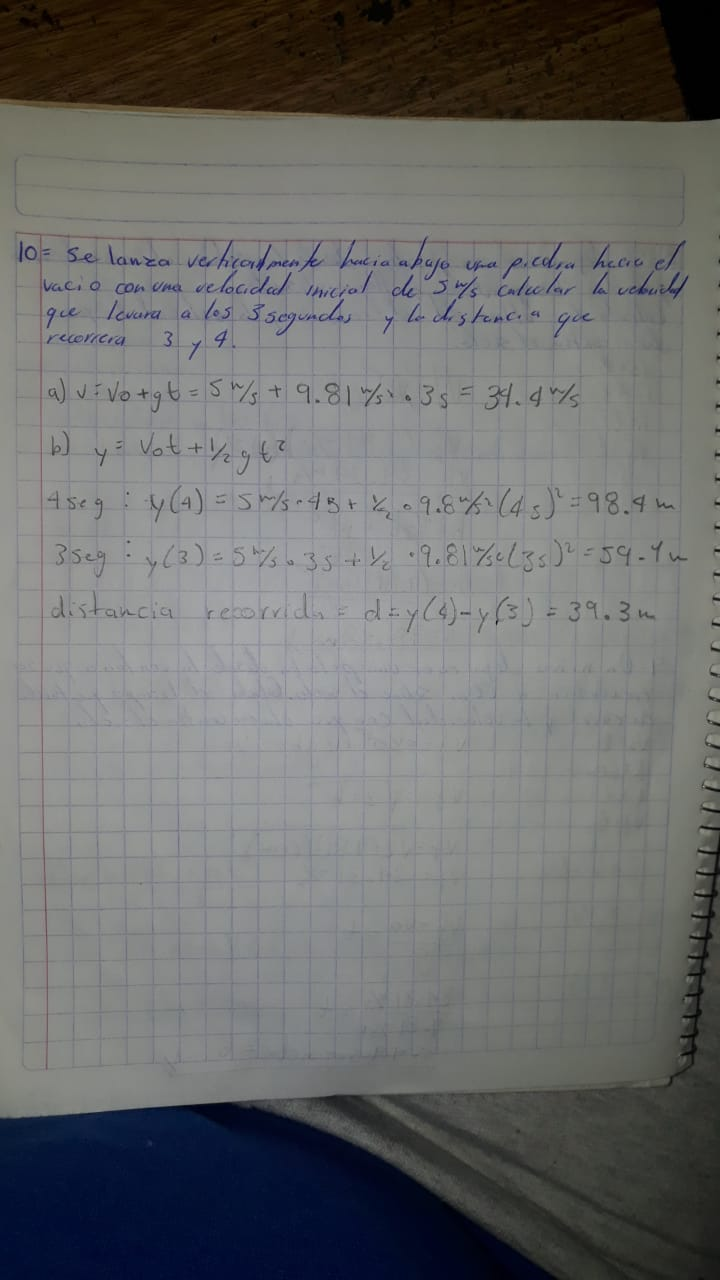 10= Se lanza verticalmente hacia abajo una piedra hacia el
vacio con una velocidad inicial de 5 m/s calcular la velocidad
que levara a los 3 segundos y la distancia que
recorrera 3 y 4.
a) v=Vo+gt = 5 m/s + 9.81 m/s² · 3s = 34.4 m/s
b) y = Vot + 1/2 gt²
4 seg : y(4) = 5 m/s · 4s + 1/2 · 9.8 m/s² (4s)² = 98.4 m
3seg : y(3) = 5 m/s · 3s + 1/2 · 9.81 m/s² (3s)² = 59.1 m
distancia recorrida = d = y(4) - y(3) = 39.3 m